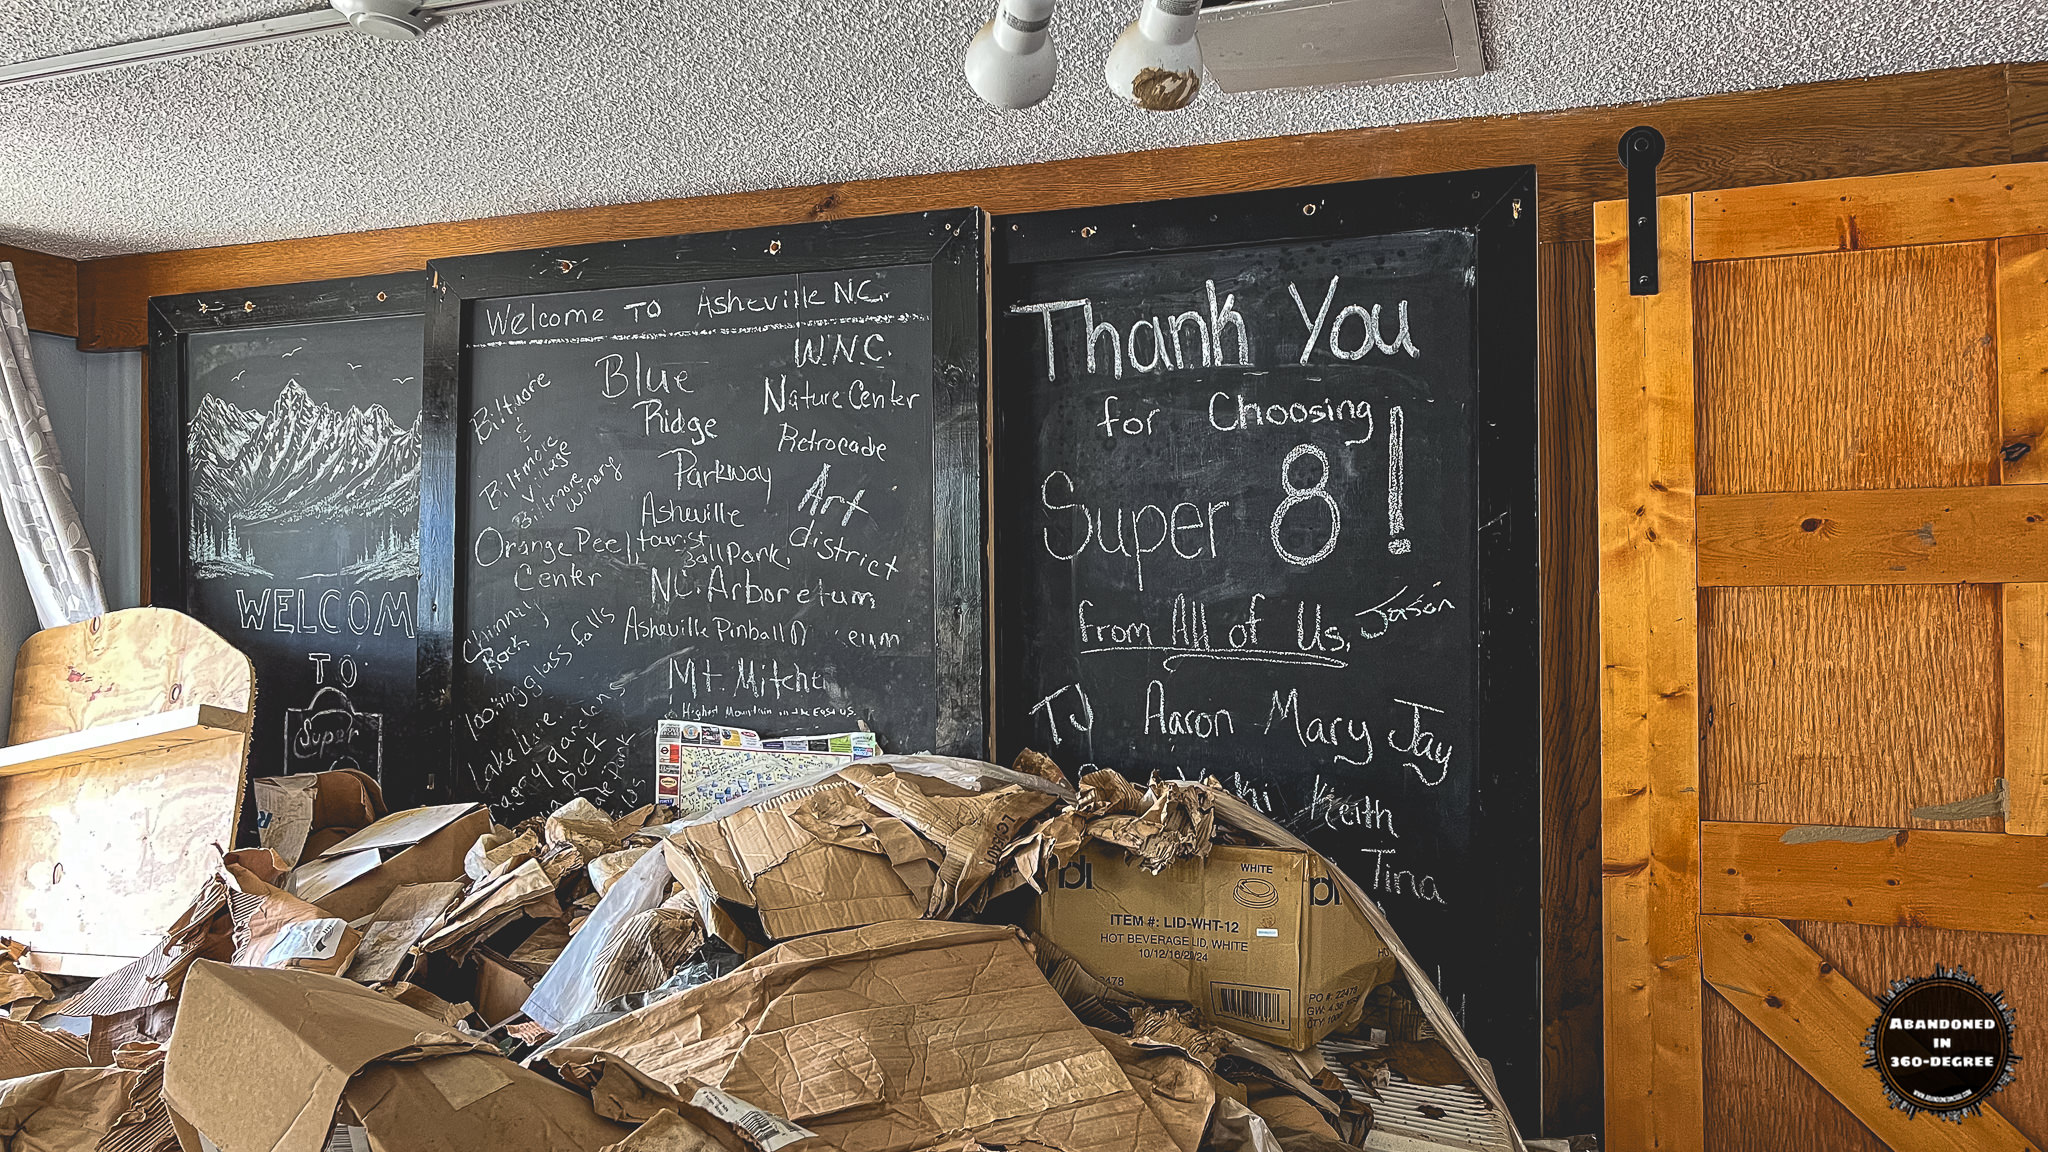 WELCOM
TO
Super
Welcome TO Asheville N.C.
Biltmore
&
Biltmore
Village
Biltmore
Winery
Orange Peel
Center
Chimnily
Rock
looking glass falls
Lake Lure.
Rock
Blue
Ridge
Parkway
Asheville
tourist
Ballpark.
N.C. Arboretum
Asheville Pinball
Mt. Mitche
Highest Mountain in the East US.
W.N.C.
Nature Center
Retrocade
Art
district
Thank You
for Choosing
Super 8!
from All of Us,
Jason
TJ Aaron Mary Jay
Keith
Tina
WHITE
ITEM #: LID-WHT-12
HOT BEVERAGE LID, WHITE
PO #: 22478
ABANDONED
IN
360-DEGREE